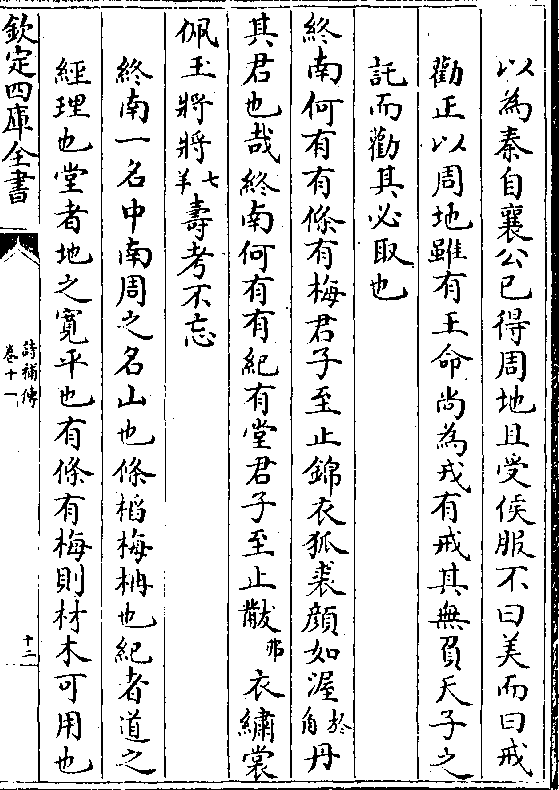 以為秦自襄公已得周地且受侯服不曰美而曰戒
勸正以周地雖有王命尚為戎有戒其無負天子之
託而勸其必取也
終南何有有條有梅君子至止錦衣狐裘顔如渥於角丹
其君也哉終南何有有紀有堂君子至止黻弗衣繡裳
佩玉將將七羊壽考不忘
終南一名中南周之名山也條稻梅柟也紀者道之
經理也堂者地之寛平也有條有梅則材木可用也
欽定四庫全書
詩補傳
卷十一
十二